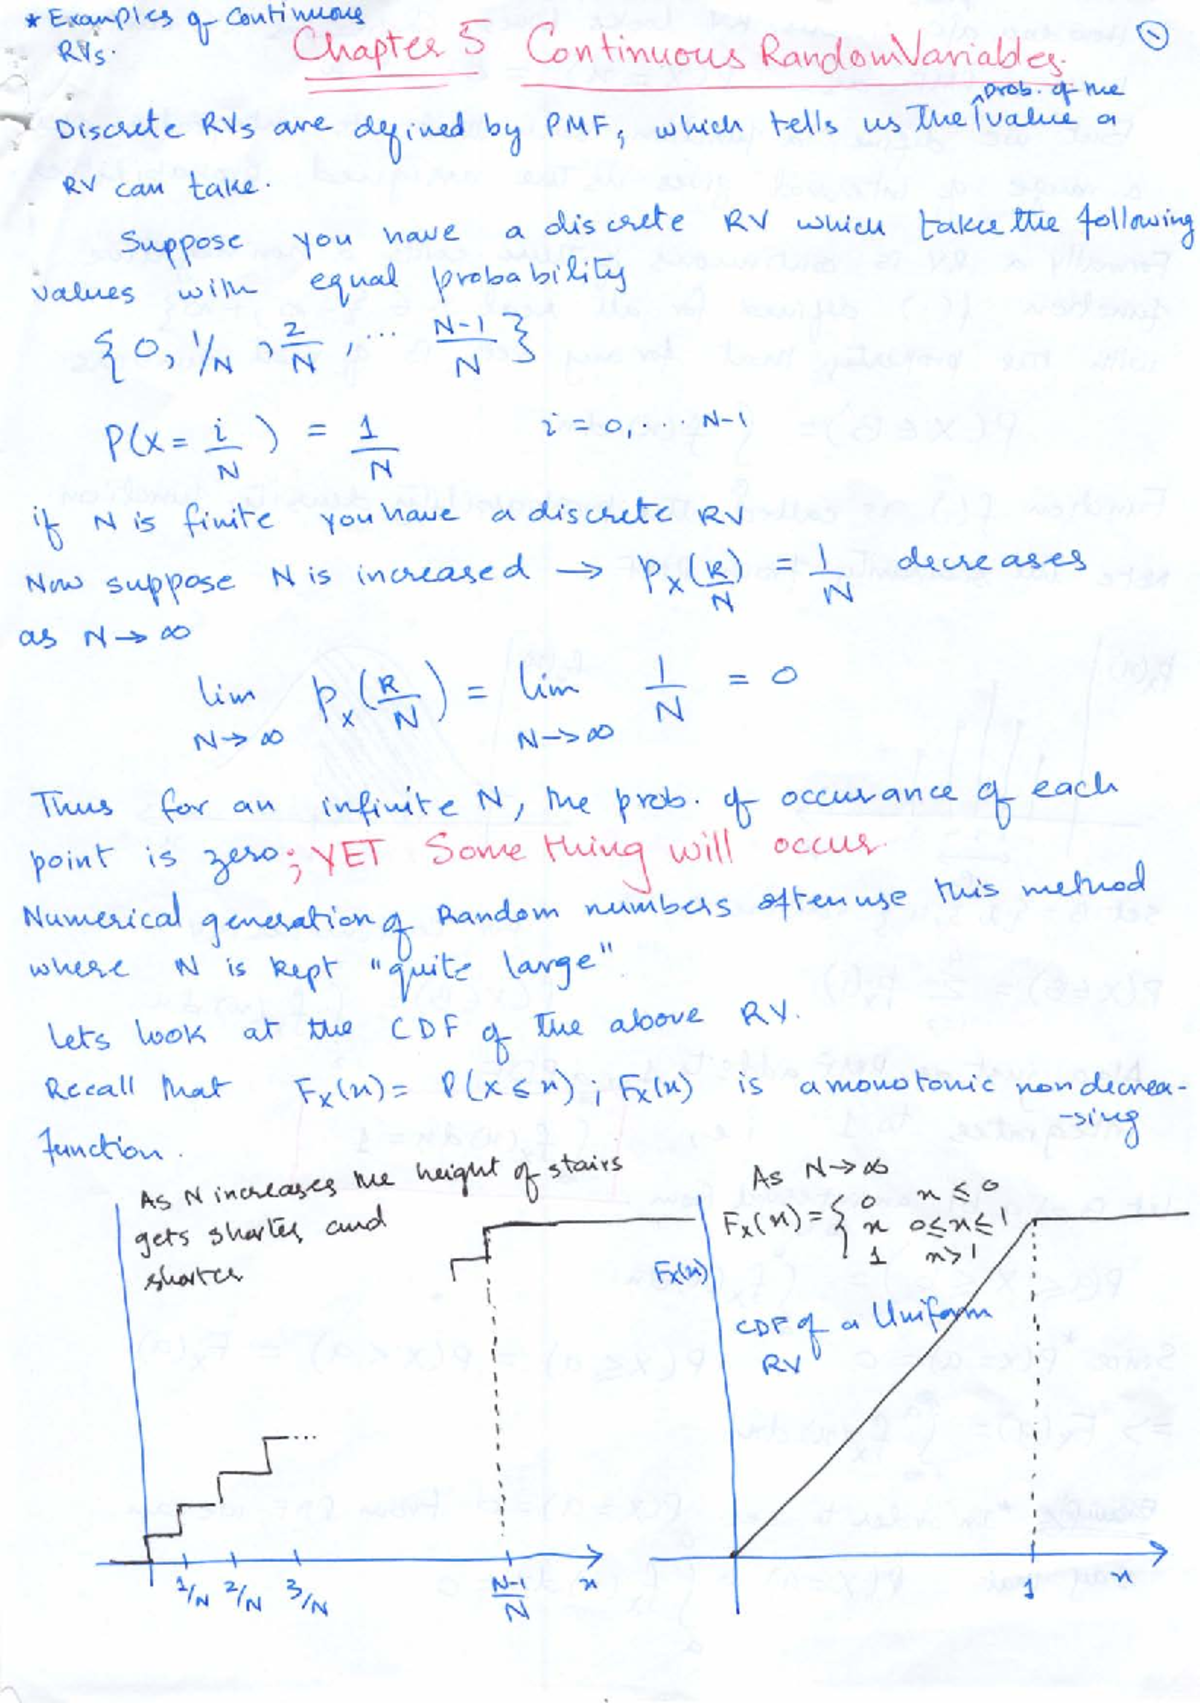 * Examples of Continuous
RVs.
Chapter 5 Continuous Random Variables.
1
prob. of the
Discrete RVs are defined by PMF, which tells us the value a
RV can take.
Suppose you have a discrete RV which takes the following
values with equal probability
{ 0, 1/N, 2/N, ... N-1/N }
P(X = i/N) = 1/N i = 0, ... N-1
if N is finite you have a discrete RV
Now suppose N is increased → p_X(k/N) = 1/N decreases
as N → ∞
lim N→∞ p_X(k/N) = lim N→∞ 1/N = 0
Thus for an infinite N, the prob. of occurance of each
point is zero; YET Something will occur.
Numerical generation of Random numbers often use this method
where N is kept "quite large".
Lets look at the CDF of the above RV.
Recall that F_X(x) = P(X ≤ x) ; F_X(x) is a monotonic nondecrea-
-sing
function.
As N increases the height of stairs
gets shorter and
shorter
1/N 2/N 3/N N-1/N x
As N → ∞
F_X(x) = { 0 x ≤ 0
x 0 ≤ x ≤ 1
1 x > 1
F_X(x)
CDF of a Uniform
RV
1 x